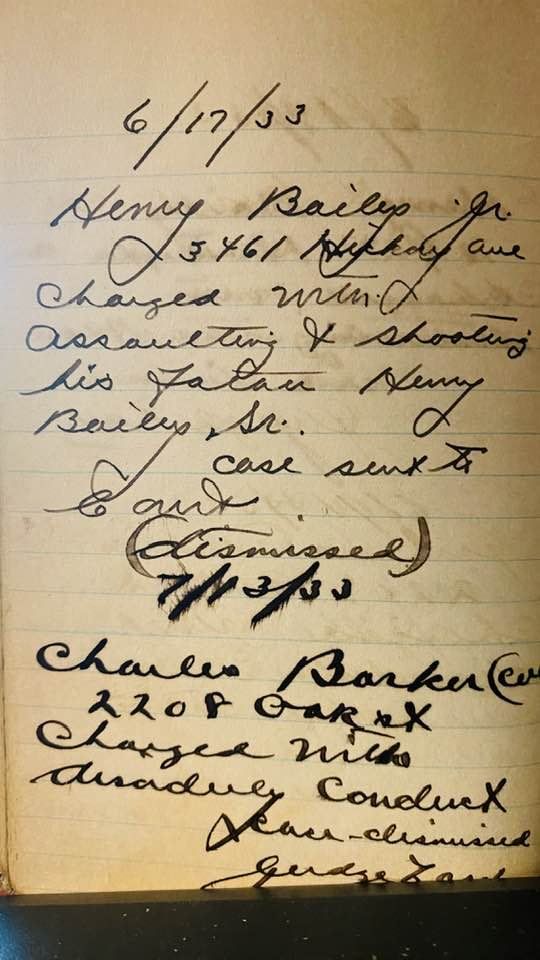 6/17/33
Henry Bailey Jr.
3461 Hickory ave
Charged with
Assaulting & Shooting
his Father Henry
Bailey, Sr.
case sent to
Court
(dismissed)
7/13/33
Charles Barker (Co
2208 Oak st
Charged with
disorderly Conduct
case-dismissed